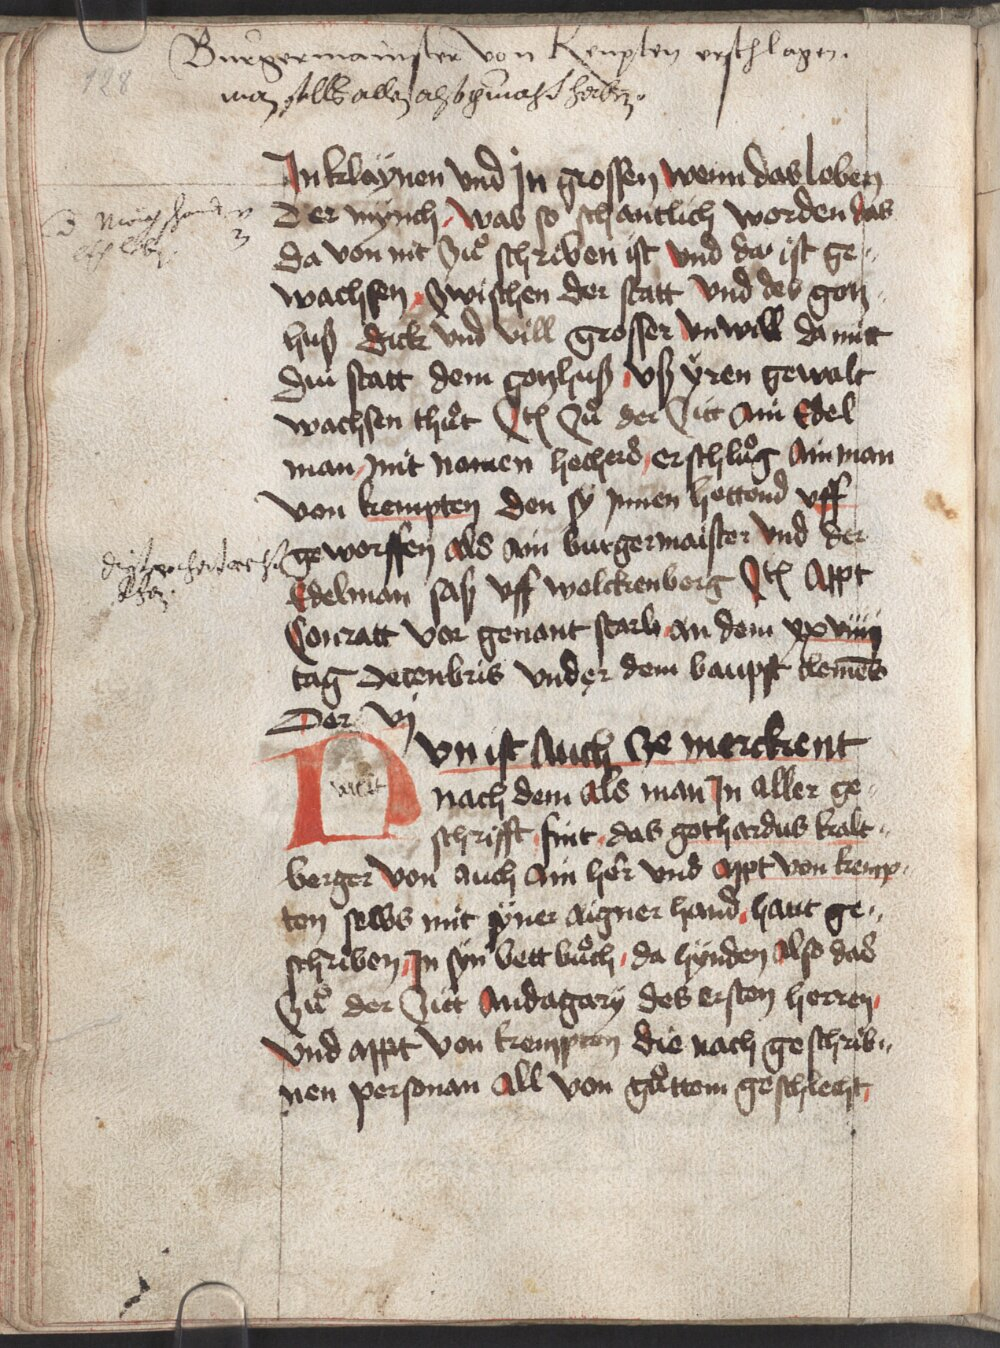 Burgermainster von Kempten erschlagen.
128
In klaÿnen vnd jn grossen wenn das leben
Der mÿnch was so schantlich worden das
da von nit zuͦ schriben ist vnd da ist ge-
wachsen zwischen der statt vnd des gotz-
huß dick vnd vill grosser vnwill da mitt
diu statt dem gotzhuß vß ÿren gewalt
wachsen thuͦt Itͫ Zuͦ der Zitt Ain Edel
man mit namen hecherd erschluͦg Ain man
von kempten den sÿ jnnen hettend vff
geworffen Als Ain burgermaister vnd der
Edelman saß vff wolckenberg Itͫ Appt
Conratt vor genant starb an dem xxviiij
tag Decenbris vnder dem baupst clemēs
Der vj
Nvn ist Auch Ze merckent
nach dem Als man In Aller ge-
schrifft fint das gothardus kralt-
berger von Auch Ain her vnd Appt von kemp-
ten selbs mit sÿner Aigner hand hatt ge-
schriben In sÿn bett buͦch da hÿnden Also das
Zuͦ der Zitt Andagarÿ des ersten herren
vnd Appt von kempten die nach geschrib-
nen personan All von guͦttem geschlecht